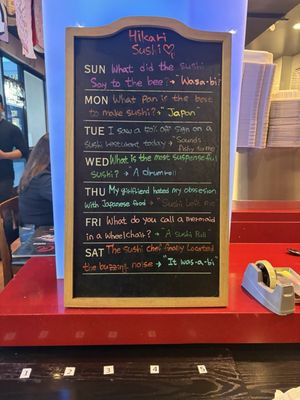 Hikari
Sushi♡
SUN What did the sushi
Say to the bee? → "Wasa-bi?
MON What Pan is the best
to make sushi? → "Japan
TUE I saw a 50% off sign on a
sushi restaurant today → "Sounds
fishy to me
WED What is the most suspenseful
sushi? → "A drumroll
THU My girlfriend hated my obsession
with Japanese food → "Sushi left me
FRI What do you call a mermaid
in a wheelchair? → "A sushi Roll"
SAT The sushi chef finally located
the buzzing noise → "It was-a-bi"
1 2 3 4 5